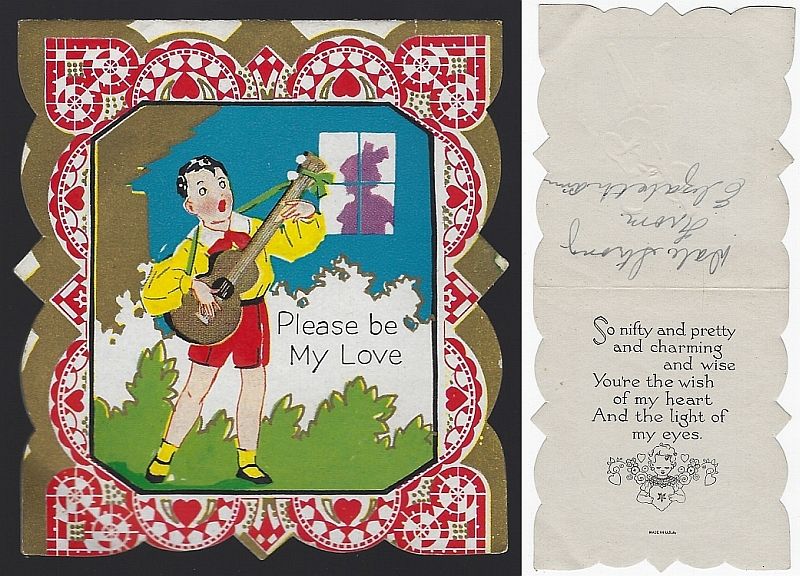 Please be
My Love
Dale Strong
From
So nifty and pretty
and charming
and wise
You're the wish
of my heart
And the light of
my eyes.
MADE IN U.S.A.